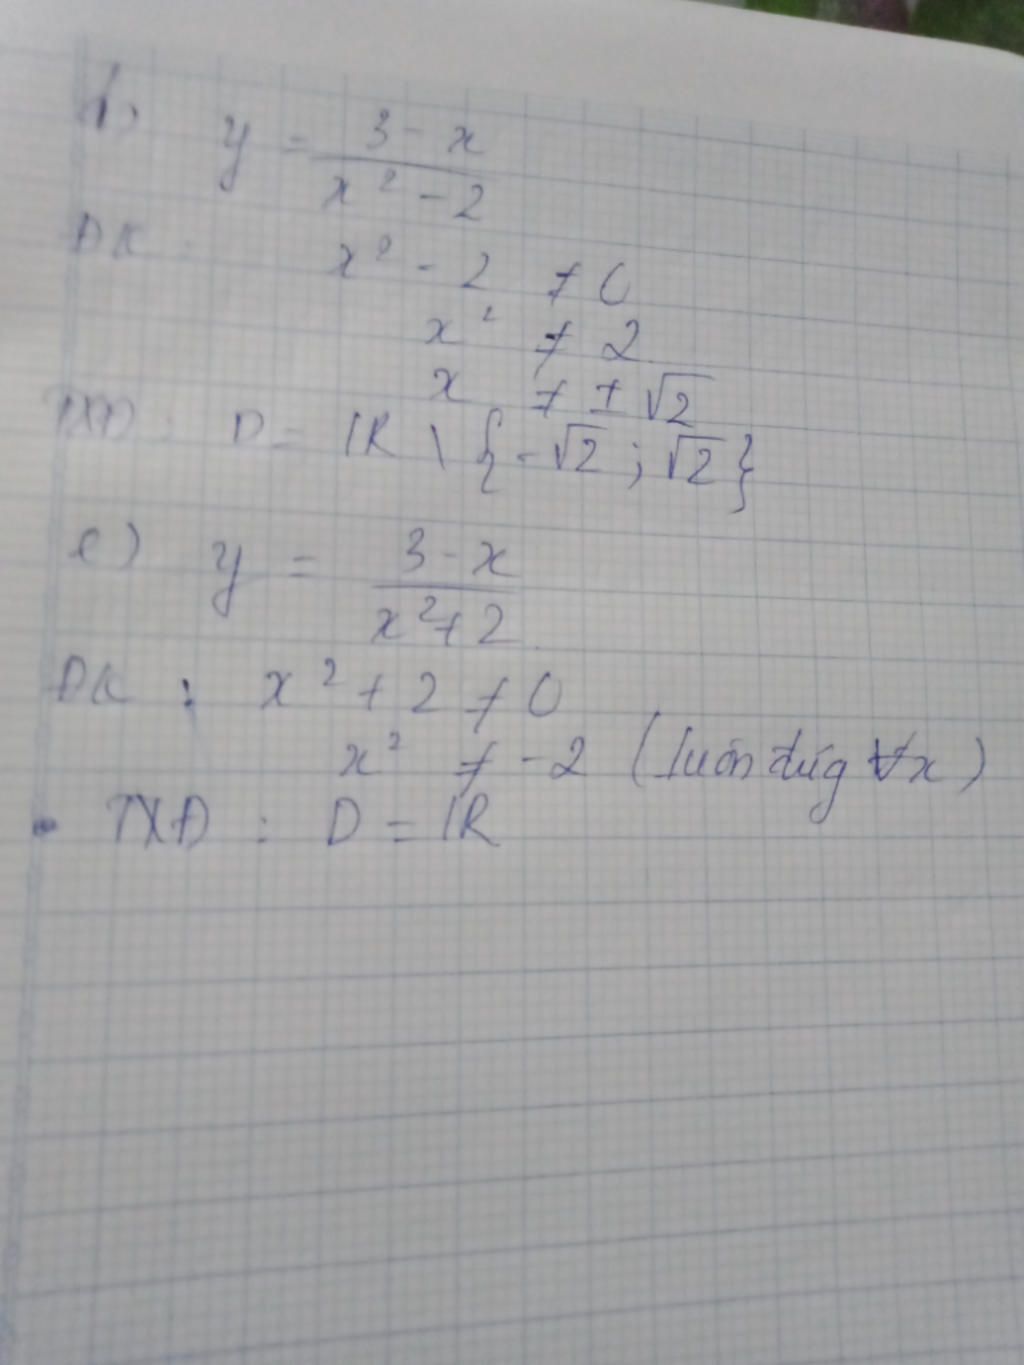 b) y = \frac{3-x}{x^2-2}
ĐK : x^2 - 2 ≠ 0
x^2 ≠ 2
x ≠ ±√2
TXĐ : D = IR \ {-√2 ; √2}
c) y = \frac{3-x}{x^2+2}
ĐK : x^2 + 2 ≠ 0
x^2 ≠ -2 (luôn đúg ∀x)
• TXĐ : D = IR